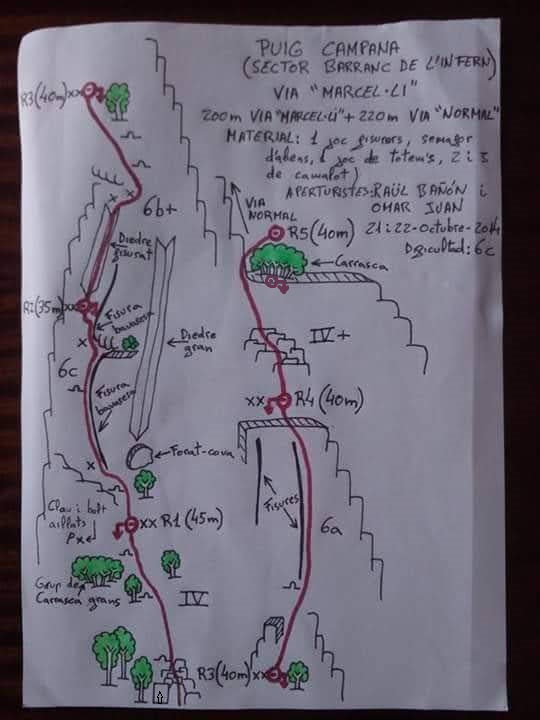 PUIG CAMPANA
(SECTOR BARRANC DE L'INFERN)
VIA "MARCEL·LI"
200m VIA "MARCEL·LI" + 220m VIA "NORMAL"
MATERIAL: 1 joc fisurers,
d'aliens, 1 joc de totem's, 2 i 3
de camalot)
APERTURISTES: RAÜL BAÑÓN i
OMAR JUAN
21 i 22-octubre-2014
Dificultad: 6c
R3(40m)xx
6b+
VIA
NORMAL
R5(40m)
Carrasca
Diedre
fisurat
R2(35m)xx
Fisura
bavaresa
x
Diedre
gran
IV+
6c
Fisura
bavaresa
xx
R4(40m)
x
Forat-cova
Clau i bolt
aillats
Px
xx R1(45m)
Fisures
6a
Grup de
Carrasca grans
IV
R3(40m)xx